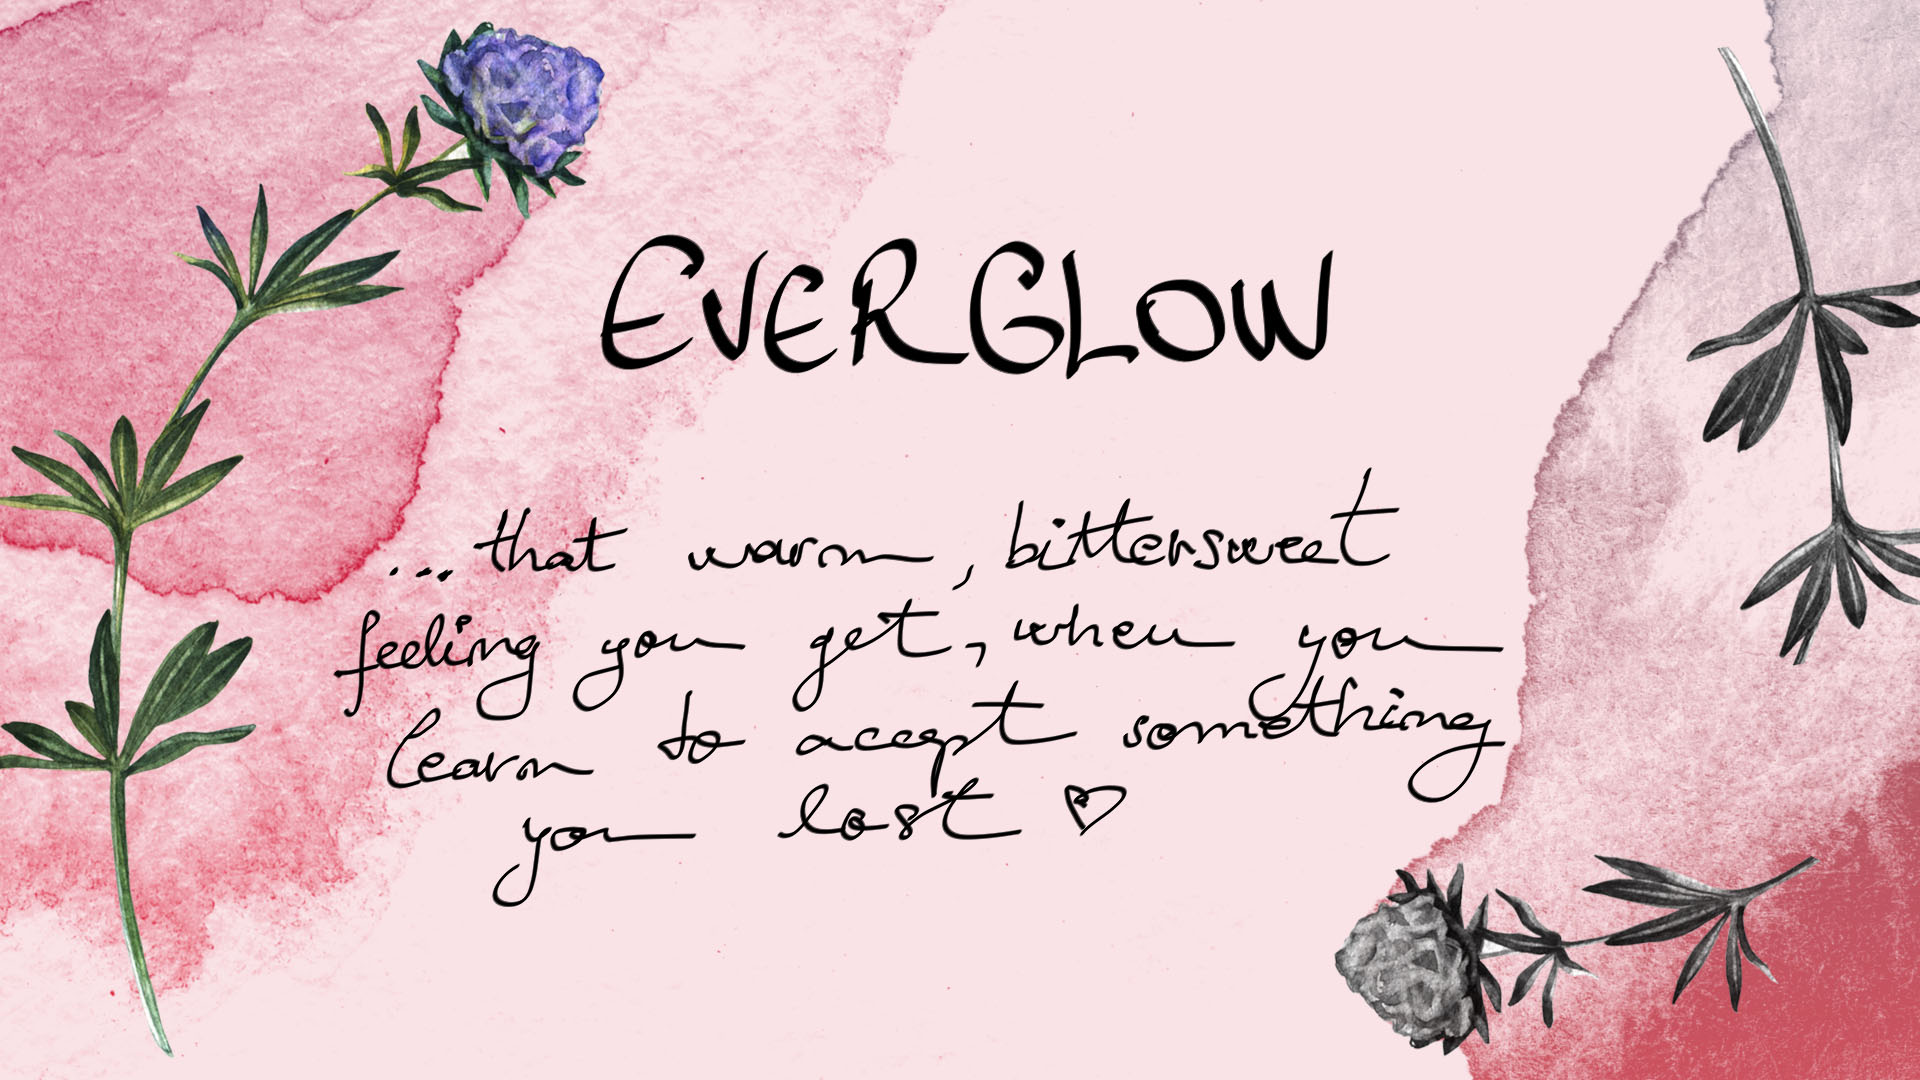 EVERGLOW
...that warm, bittersweet
feeling you get, when you
learn to accept something
you lost ♡